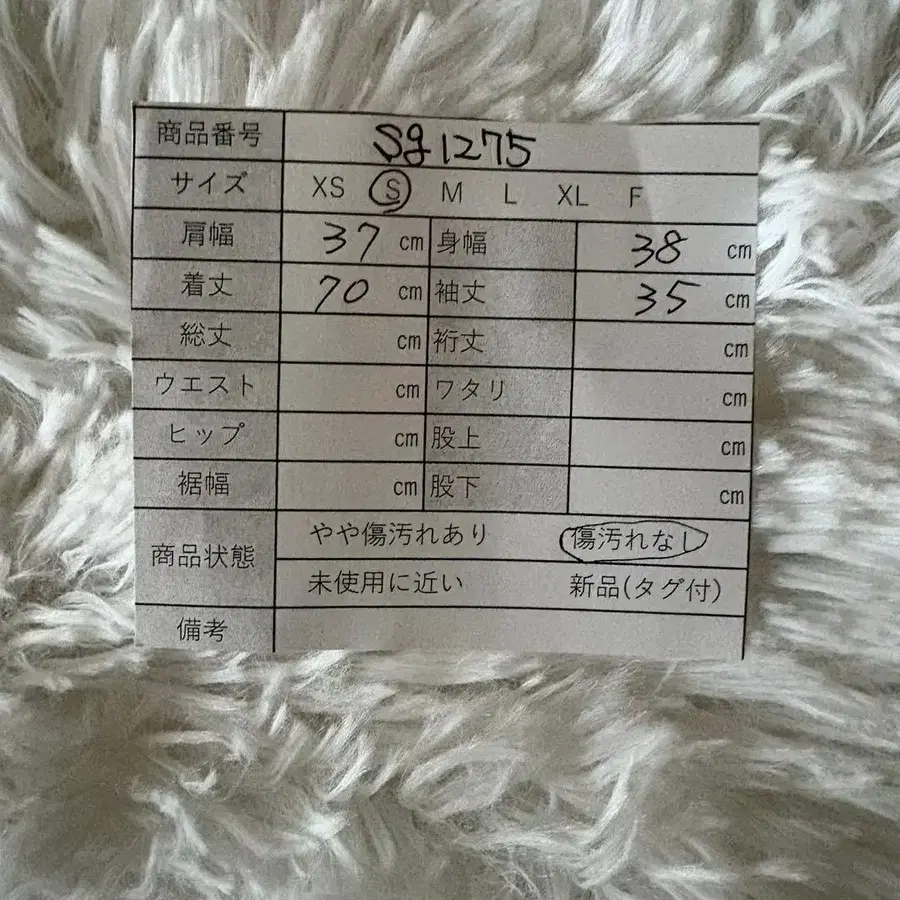 商品番号 Sg1275
サイズ XS S M L XL F
肩幅 37 cm 身幅 38 cm
着丈 70 cm 袖丈 35 cm
総丈 cm 裄丈 cm
ウエスト cm ワタリ cm
ヒップ cm 股上 cm
裾幅 cm 股下 cm
商品状態 やや傷汚れあり 傷汚れなし
未使用に近い 新品(タグ付)
備考